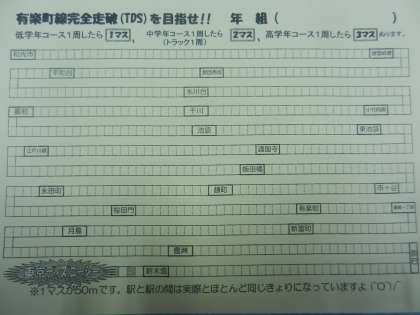 有楽町線完全走破(TDS)を目指せ!! 年 組( )
低学年コース1周したら 1マス 、 中学年コース1周したら 2マス 、 高学年コース1周したら 3マス ぬります。
(トラック1周)
和光市
平和台
氷川台
千川
池袋 東池袋
江戸川橋 護国寺
飯田橋
永田町 麹町 市ヶ谷
桜田門 有楽町
月島 新富町
豊洲
新木場
※1マスが50mです。駅と駅の間は実際とほとんど同じきょりになっていますよ(^O^)/